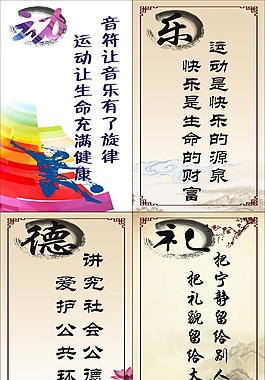 动
音符让音乐有了旋律
运动让生命充满健康
乐
运动是快乐的源泉
快乐是生命的财富
德
讲究社会公德
爱护公共环
礼
把宁静留给别人
把礼貌留给大